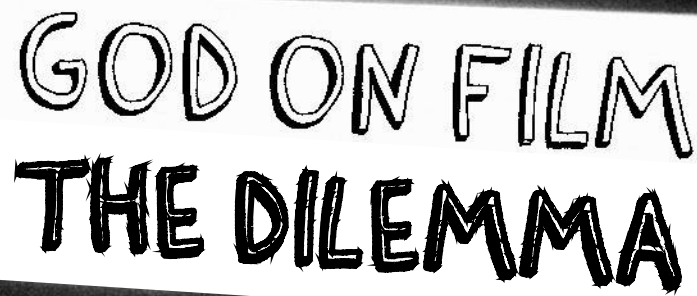 GOD ON FILM
THE DILEMMA